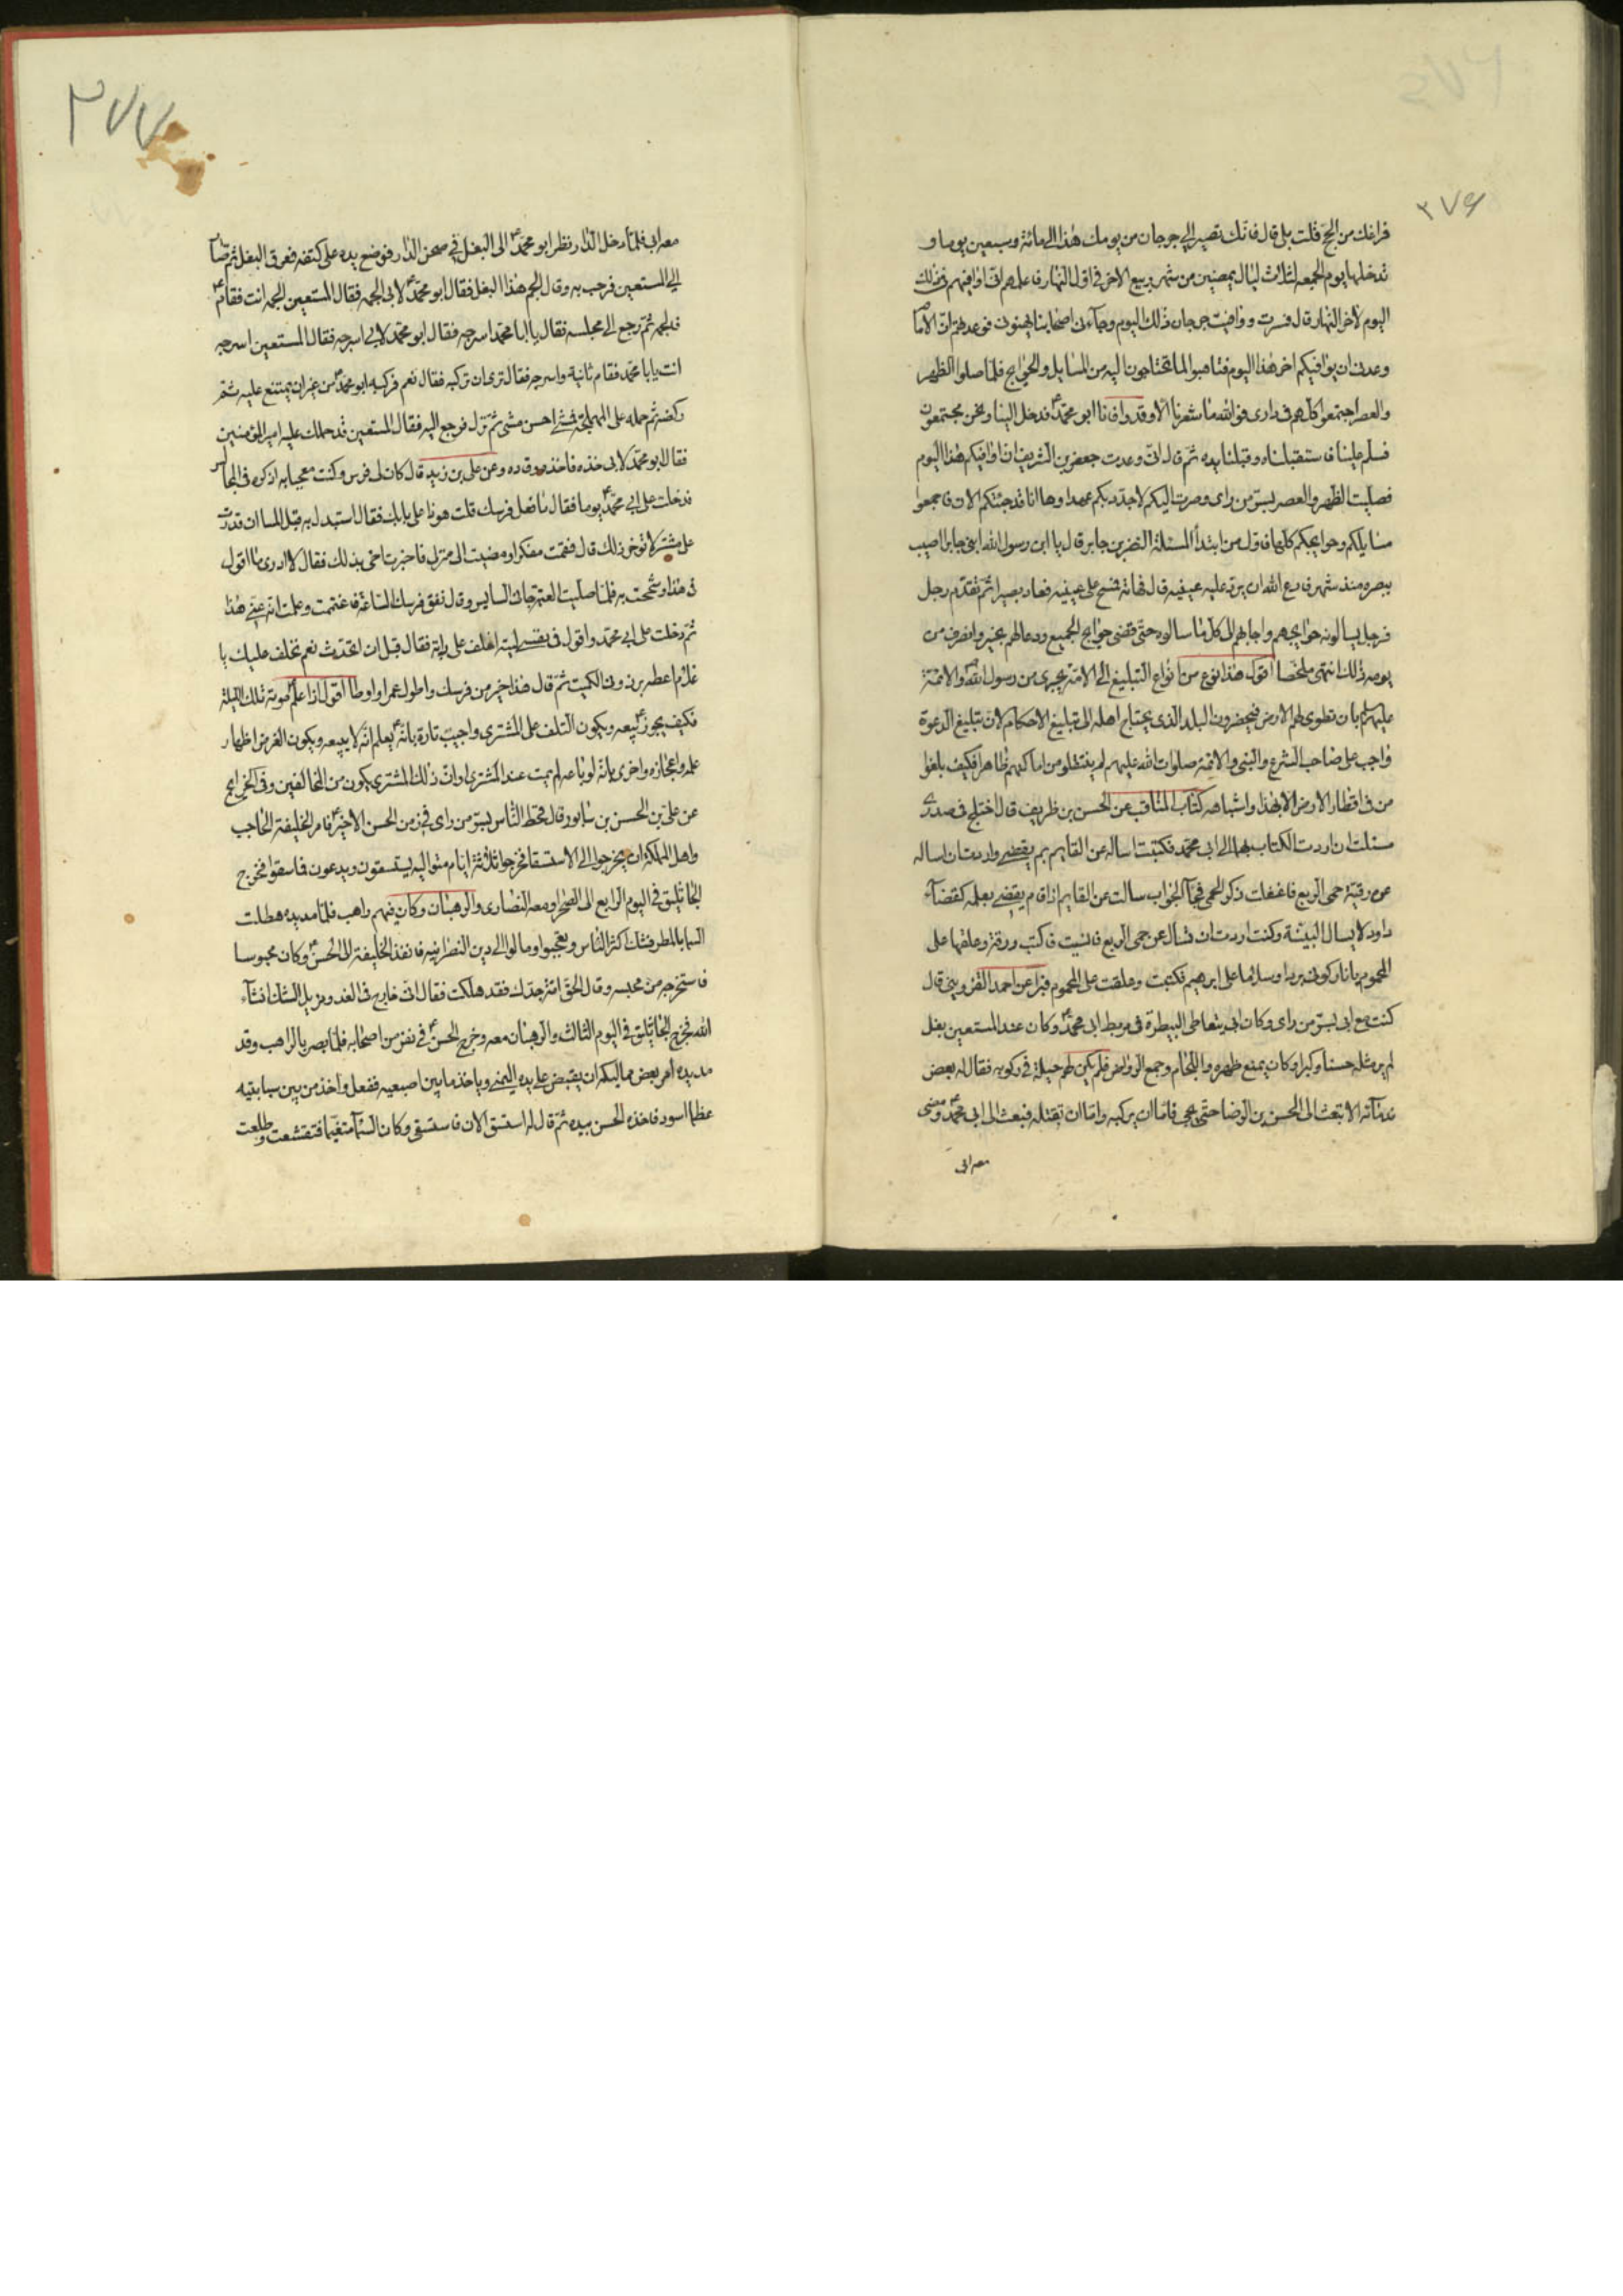 ٢٧۶
فراغك من الحج قلت بلى قال فانك تصير الى جرجان من يومك هذا الى مائة وسبعين يوما و
تدخلها يوم الجمعه لثلاث ليال يمضين من شهر ربيع الاخر فى اول النهار فاعلمهم انى اوافيهم فى ذلك
اليوم لاخر النهار قال فسرت ووافيت جرجان ذلك اليوم وجاءنى اصحابنا يهنونى فوعدتهم ان الامام
وعدنى ان يوافيكم اخر هذا اليوم فتاهبوا لما تحتاجون اليه من المسايل والحوايج فلما صلوا الظهر
والعصر اجتمعوا كلهم فى دارى فوالله ما شعرنا الا وقد وافانا ابو محمد ع فدخل الينا ونحن مجتمعون
فسلم علينا فاستقبلناه وقبلنا يده ثم قال انى وعدت جعفر بن الشريف ان اوافيكم هذا اليوم
فصليت الظهر والعصر بسر من راى وصرت اليكم لاجدد بكم عهدا وها انا قد جئتكم الان فاجمعوا
مسايلكم وحوايجكم كلها فاول من ابتدأ المسئلة النضر بن جابر قال يا ابن رسول الله ابنى جابرا اصيب
ببصره منذ شهر فادع الله ان يرد عليه عينيه قال فهاته فمسح على عينيه فعاد بصيرا ثم تقدم رجل
فرجل يسالونه حوايجهم واجابهم الى كل ما سالوه حتى قضى حوايج الجميع ودعا لهم بخير وانصرف من
يومه ذلك انتهى ملخصا اقول هذا نوع من انواع التبليغ الى الامة يجرى من رسول الله والائمة
عليهم بان تطوى لهم الارض فيحضرون البلد الذى يحتاج اهله الى تبليغ الاحكام لان تبليغ الدعوة
واجب على صاحب الشرع والنبى والائمة صلوات الله عليهم لم ينتقلوا من اماكنهم ظاهرا فكيف بلغوا
من فى اقطار الارض الا بهذا واشباهه كتاب المناقب عن الحسن بن ظريف قال اختلج فى صدرى
مسئلتان اردت الكتاب بهما الى ابى محمد فكتبت اساله عن القايم بم يقضى واردت ان اساله
عن رقية حمى الربع فاغفلت ذكر الحمى فجآ الجواب سالت عن القايم اذا قام يقضى بعلمه كقضآء
داود لا يسال البينة وكنت اردت ان تسال عن حمى الربع فانسيت فاكتب ورقة وعلقها على
المحموم يا نار كونى بردا وسلاما على ابرهيم فكتبت وعلقت على المحموم فبرا عن احمد القزوينى قال
كنت مع ابى بسر من راى وكان ابى يتعاطى البيطرة فى مربط ابى محمد ع وكان عند المستعين بغل
لم ير مثله حسنا وكبرا وكان يمنع ظهره واللجام وجمع الرواض فلم يكن لهم حيلة فى ركوبه فقال له بعض
ندمآئه الا تبعث الى الحسن بن الرضا حتى يجى فاما ان يركبه واما ان يقتله فبعث الى ابى محمد ع ومضى
معه ابى
٢٧٧
معه ابى فلما دخل الدار نظر ابو محمد ع الى البغل فى صحن الدار فوضع يده على كتفه فعرق البغل ثم صار
الى المستعين فرحب به وقال الجم هذا البغل فقال ابو محمد ع لابى الجمه فقال المستعين الجمه انت فقام ع
فالجمه ثم رجع الى مجلسه فقال يا ابا محمد اسرجه فقال ابو محمد لابى اسرجه فقال المستعين اسرجه
انت يابا محمد فقام ثانية واسرجه فقال ترى ان تركبه فقال نعم فركبه ابو محمد ع من غير ان يمتنع عليه ثم
ركضه ثم حمله على الهملجة فمشى احسن مشى ثم نزل فرجع اليه فقال المستعين قد حملك عليه امير المؤمنين
فقال ابو محمد لابى خذه فاخذه وقاده وعن على بن زيد قال كان لى فرس وكنت معجبا به اذكره فى المجالس
فدخلت على ابى محمد ع يوما فقال ما فعل فرسك قلت هو ذا على بابك فقال استبدل به قبل المسا ان قدرت
على مشتر لا تؤخر ذلك قال فقمت مفكرا ومضيت الى منزلى فاخبرت اخى بذلك فقال لا ادرى ما اقول
فى هذا وشححت به فلما صليت العتمة جائنى السايس وقال نفق فرسك الساعة فاغتممت وعلمت انه عنى هذا
ثم دخلت على ابى محمد واقول فى نفسى ليته اخلف على دابة فقال قبل ان اتحدث نعم نخلف عليك يا
غلام اعطه برذونى الكميت ثم قال هذا خير من فرسك واطول عمرا واوطا اقول اذا علم ع موته تلك الليلة
فكيف يجوز بيعه ويكون التلف على المشترى واجيب تارة بانه ع يعلم انه لا يبيعه ويكون الغرض اظهار
علمه واعجازه واخرى بانه لو باعه لم يمت عند المشترى او ان ذلك المشترى يكون من المخالفين وفى الخرايج
عن على بن الحسن بن سابور قال قحط الناس بسر من راى فى زمن الحسن الاخير ع فامر الخليفة الحاجب
واهل المملكة ان يخرجوا الى الاستسقا فخرجوا ثلثة ايام متواليه يستسقون ويدعون فما سقوا فخرج
الجاثليق فى اليوم الرابع الى الصحرا ومعه النصارى والرهبان وكان فيهم راهب فلما مد يده هطلت
السما بالمطر فشك اكثر الناس وتعجبوا ومالوا الى دين النصرانيه فانفذ الخليفة الى الحسن ع وكان محبوسا
فاستخرجه من محبسه وقال الحق امة جدك فقد هلكت فقال انى خارج فى الغد ومزيل الشك انشآء
الله فخرج الجاثليق فى اليوم الثالث والرهبان معه وخرج الحسن ع فى نفر من اصحابه فلما بصر بالراهب وقد
مد يده امر بعض مماليكه ان يقبض على يده اليمنى وياخذ ما بين اصبعيه ففعل واخذ من بين سبابتيه
عظما اسود فاخذه الحسن بيده ثم قال له استسق الان فاستسقى وكان السمآ متغيما فتقشعت وطلعت